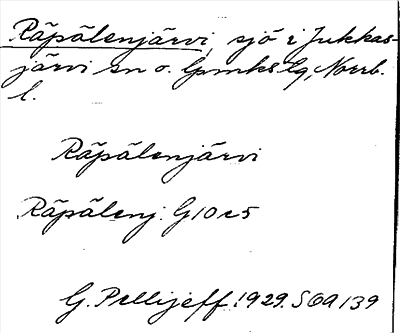 Räpälenjärvi, sjö i Jukkas-
järvi sn o. lpmks lg, Norrb.
l.
Räpälenjärvi
Räpälenj. G10 c5
G. Pellijeff 1929. S 69 139